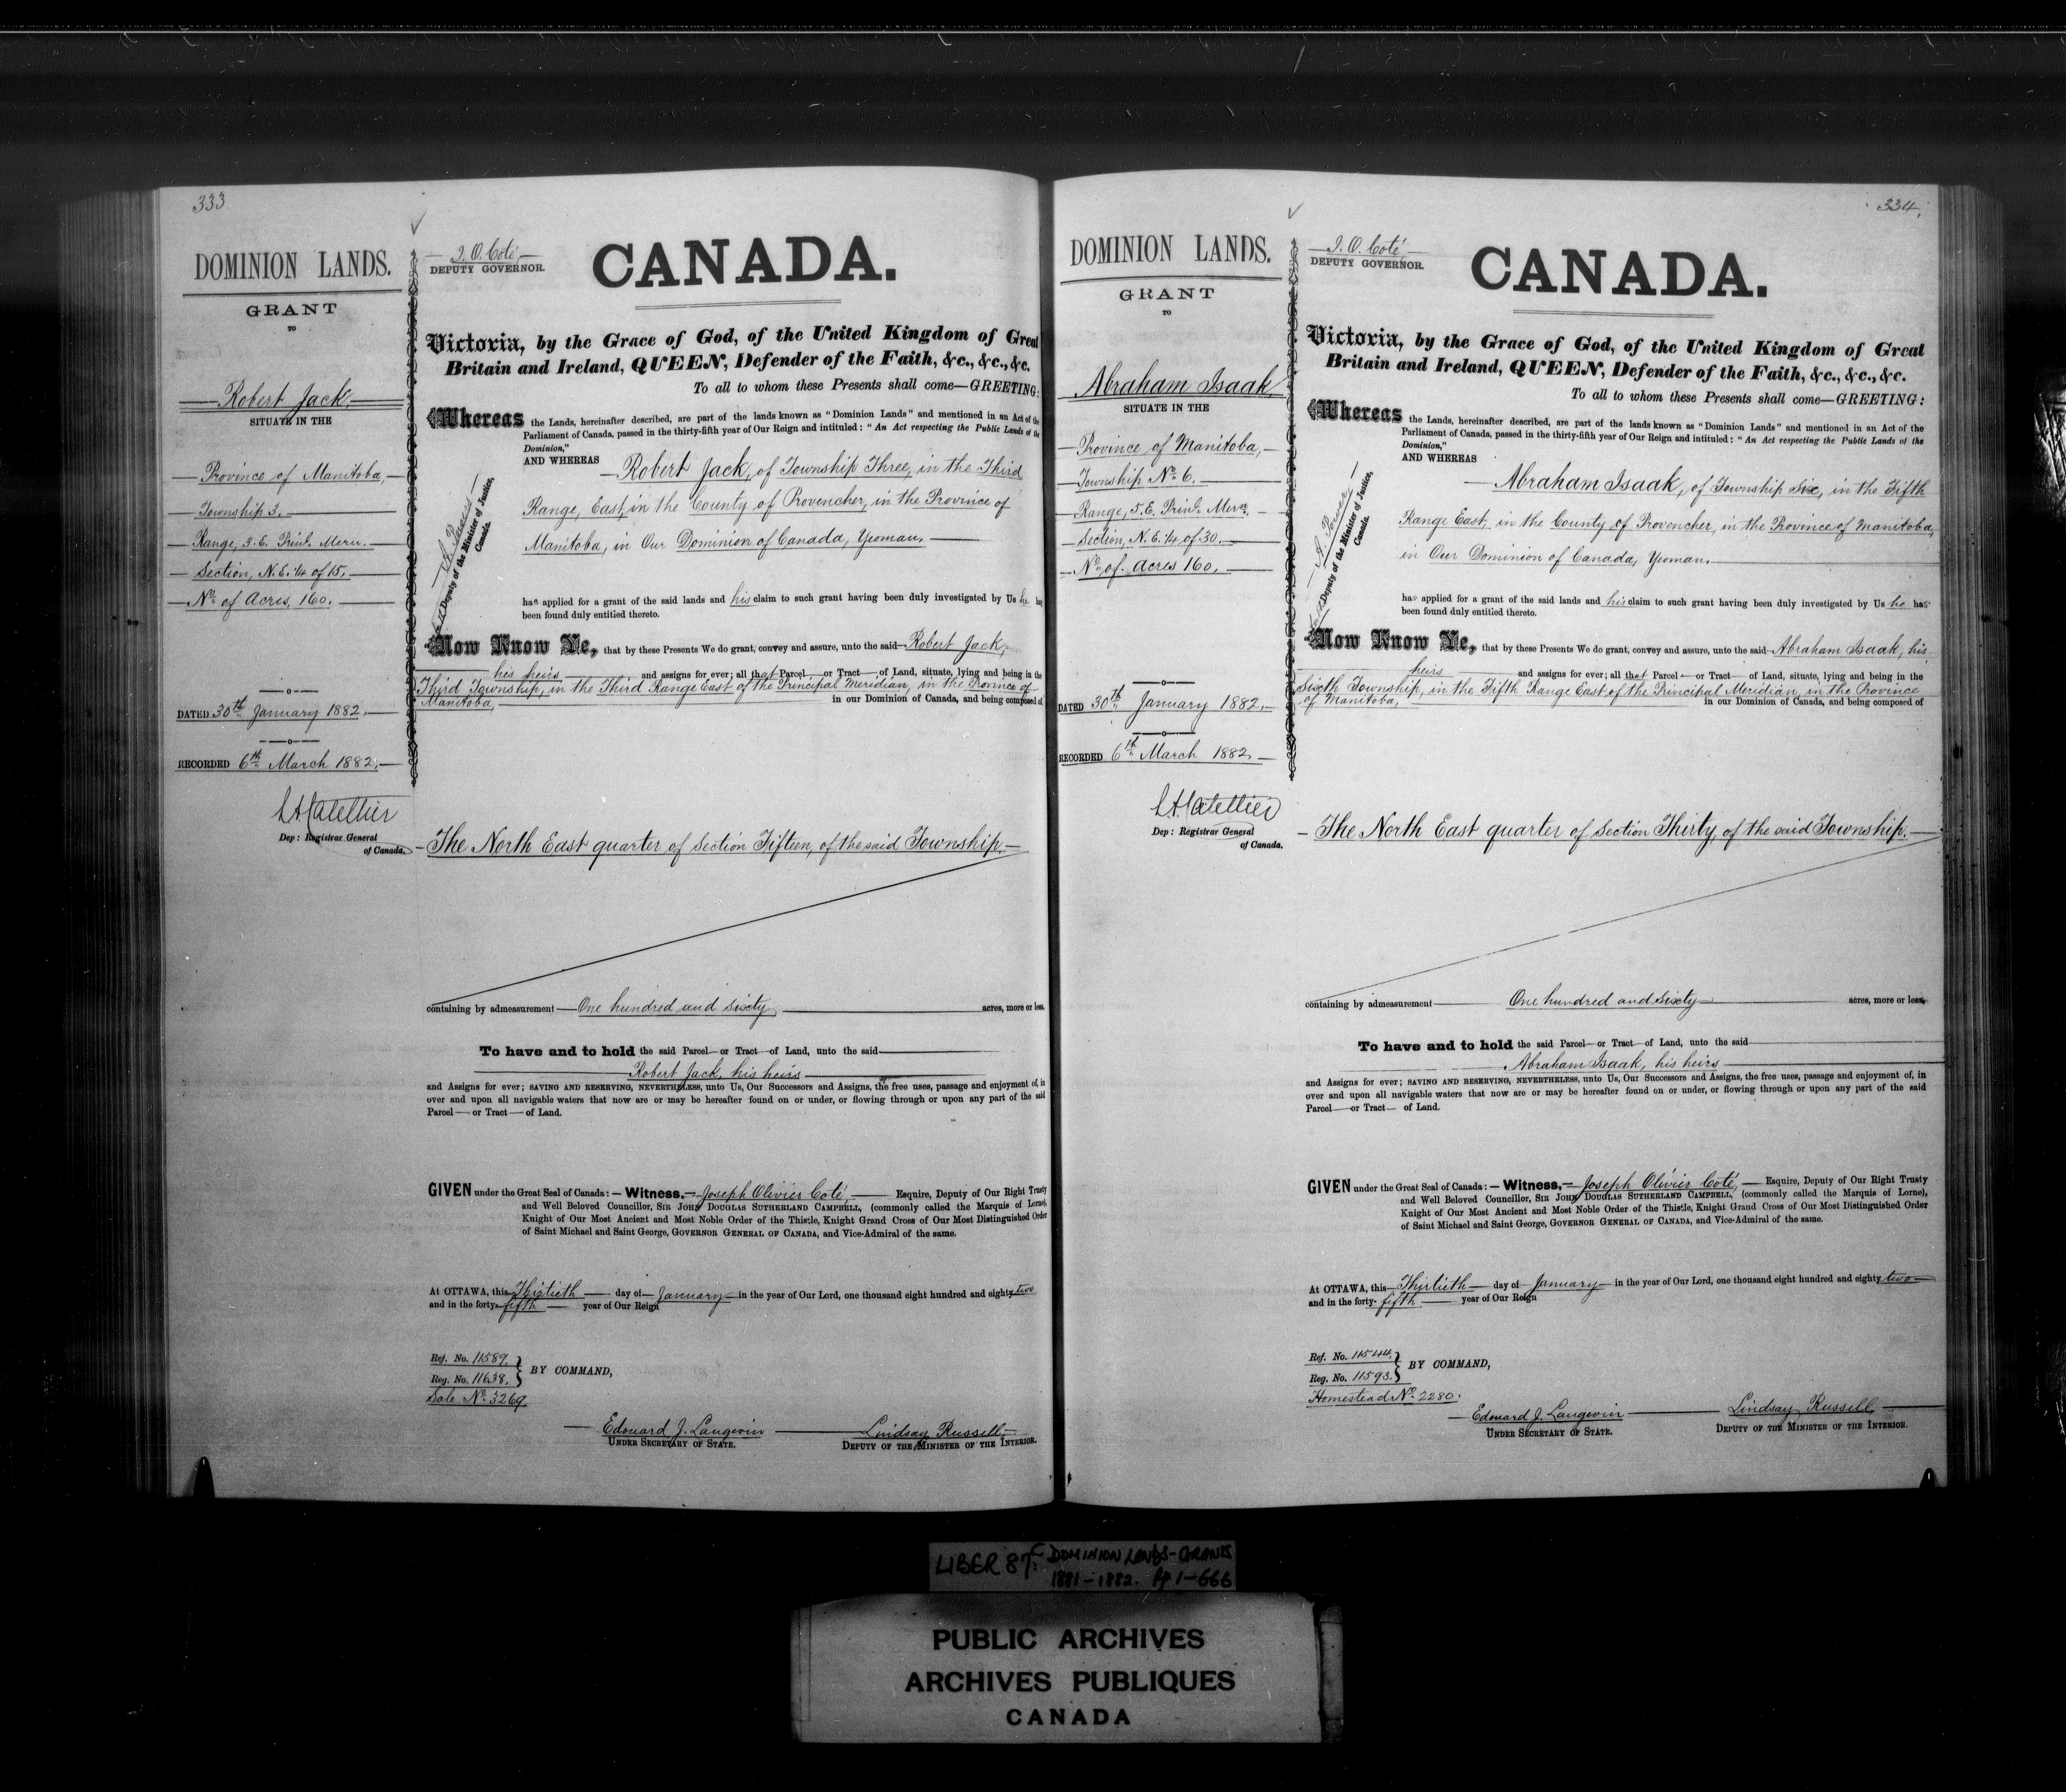 333
DOMINION LANDS.
GRANT
TO
Robert Jack.
SITUATE IN THE
Province of Manitoba,
Township 3.
Range, 3. E. Prinl. Mern.
Section, N. E. 1/4 of 15.
No. of Acres, 160.
DATED 30th January 1882.
RECORDED 6th March 1882.
Dep: Registrar General
of Canada.
J. O. Coté,
DEPUTY GOVERNOR.
CANADA.
Victoria, by the Grace of God, of the United Kingdom of Great
Britain and Ireland, QUEEN, Defender of the Faith, &c., &c., &c.
To all to whom these Presents shall come—GREETING:
Whereas the Lands, hereinafter described, are part of the lands known as "Dominion Lands" and mentioned in an Act of the
Parliament of Canada, passed in the thirty-fifth year of Our Reign and intituled: "An Act respecting the Public Lands of the
Dominion,"
AND WHEREAS Robert Jack, of Township Three, in the Third
Range, East, in the County of Provencher, in the Province of
Manitoba, in Our Dominion of Canada, Yeoman,
A. Power
Deputy of the Minister of Justice,
Canada.
has applied for a grant of the said lands and his claim to such grant having been duly investigated by Us he has
been found duly entitled thereto.
Now Know Ye, that by these Presents We do grant, convey and assure, unto the said Robert Jack,
his heirs and assigns for ever; all that Parcel or Tract of Land, situate, lying and being in the
Third Township, in the Third Range East of the Principal Meridian, in the Province of
Manitoba, in our Dominion of Canada, and being composed of
The North East quarter of Section Fifteen, of the said Township.
containing by admeasurement One hundred and sixty acres, more or less.
To have and to hold the said Parcel or Tract of Land, unto the said
Robert Jack, his heirs
and Assigns for ever; SAVING AND RESERVING, NEVERTHELESS, unto Us, Our Successors and Assigns, the free uses, passage and enjoyment of, in
over and upon all navigable waters that now are or may be hereafter found on or under, or flowing through or upon any part of the said
Parcel or Tract of Land.
GIVEN under the Great Seal of Canada:—Witness,—Joseph Olivier Coté, Esquire, Deputy of Our Right Trusty
and Well Beloved Councillor, SIR JOHN DOUGLAS SUTHERLAND CAMPBELL, (commonly called the Marquis of Lorne),
Knight of Our Most Ancient and Most Noble Order of the Thistle, Knight Grand Cross of Our Most Distinguished Order
of Saint Michael and Saint George, GOVERNOR GENERAL OF CANADA, and Vice-Admiral of the same.
At OTTAWA, this Thirtieth day of January in the year of Our Lord, one thousand eight hundred and eighty two
and in the forty-fifth year of Our Reign
Ref. No. 11589.
Reg. No. 11638.
BY COMMAND,
Sale No. 3269.
Edouard J. Langevin
UNDER SECRETARY OF STATE.
Lindsay Russell,
DEPUTY OF THE MINISTER OF THE INTERIOR.
334.
DOMINION LANDS.
GRANT
TO
Abraham Isaak,
SITUATE IN THE
Province of Manitoba,
Township No. 6.
Range, 5. E. Prinl. Mern.
Section, N. E. 1/4 of 30.
No. of Acres 160.
DATED 30th January 1882.
RECORDED 6th March 1882.
Dep: Registrar General
of Canada.
J. O. Coté,
DEPUTY GOVERNOR.
CANADA.
Victoria, by the Grace of God, of the United Kingdom of Great
Britain and Ireland, QUEEN, Defender of the Faith, &c., &c., &c.
To all to whom these Presents shall come—GREETING:
Whereas the Lands, hereinafter described, are part of the lands known as "Dominion Lands" and mentioned in an Act of the
Parliament of Canada, passed in the thirty-fifth year of Our Reign and intituled: "An Act respecting the Public Lands of the
Dominion,"
AND WHEREAS
Abraham Isaak, of Township Six, in the Fifth
Range East, in the County of Provencher, in the Province of Manitoba,
in Our Dominion of Canada, Yeoman.
A. Power
Deputy of the Minister of Justice,
Canada.
has applied for a grant of the said lands and his claim to such grant having been duly investigated by Us he has
been found duly entitled thereto.
Now Know Ye, that by these Presents We do grant, convey and assure, unto the said Abraham Isaak, his
heirs and assigns for ever; all that Parcel or Tract of Land, situate, lying and being in the
Sixth Township, in the Fifth Range East of the Principal Meridian, in the Province
of Manitoba, in our Dominion of Canada, and being composed of
The North East quarter of Section Thirty, of the said Township.
containing by admeasurement One hundred and sixty acres, more or less.
To have and to hold the said Parcel or Tract of Land, unto the said
Abraham Isaak, his heirs
and Assigns for ever; SAVING AND RESERVING, NEVERTHELESS, unto Us, Our Successors and Assigns, the free uses, passage and enjoyment of, in
over and upon all navigable waters that now are or may be hereafter found on or under, or flowing through or upon any part of the said
Parcel or Tract of Land.
GIVEN under the Great Seal of Canada:—Witness,—Joseph Olivier Coté, Esquire, Deputy of Our Right Trusty
and Well Beloved Councillor, SIR JOHN DOUGLAS SUTHERLAND CAMPBELL, (commonly called the Marquis of Lorne),
Knight of Our Most Ancient and Most Noble Order of the Thistle, Knight Grand Cross of Our Most Distinguished Order
of Saint Michael and Saint George, GOVERNOR GENERAL OF CANADA, and Vice-Admiral of the same.
At OTTAWA, this Thirtieth day of January in the year of Our Lord, one thousand eight hundred and eighty two
and in the forty-fifth year of Our Reign
Ref. No. 11544.
Reg. No. 11593.
BY COMMAND,
Homestead No. 2280.
Edouard J. Langevin
UNDER SECRETARY OF STATE.
Lindsay Russell,
DEPUTY OF THE MINISTER OF THE INTERIOR.
LIBER 87C DOMINION LANDS-GRANTS
1881-1882. Pg 1-666
PUBLIC ARCHIVES
ARCHIVES PUBLIQUES
CANADA